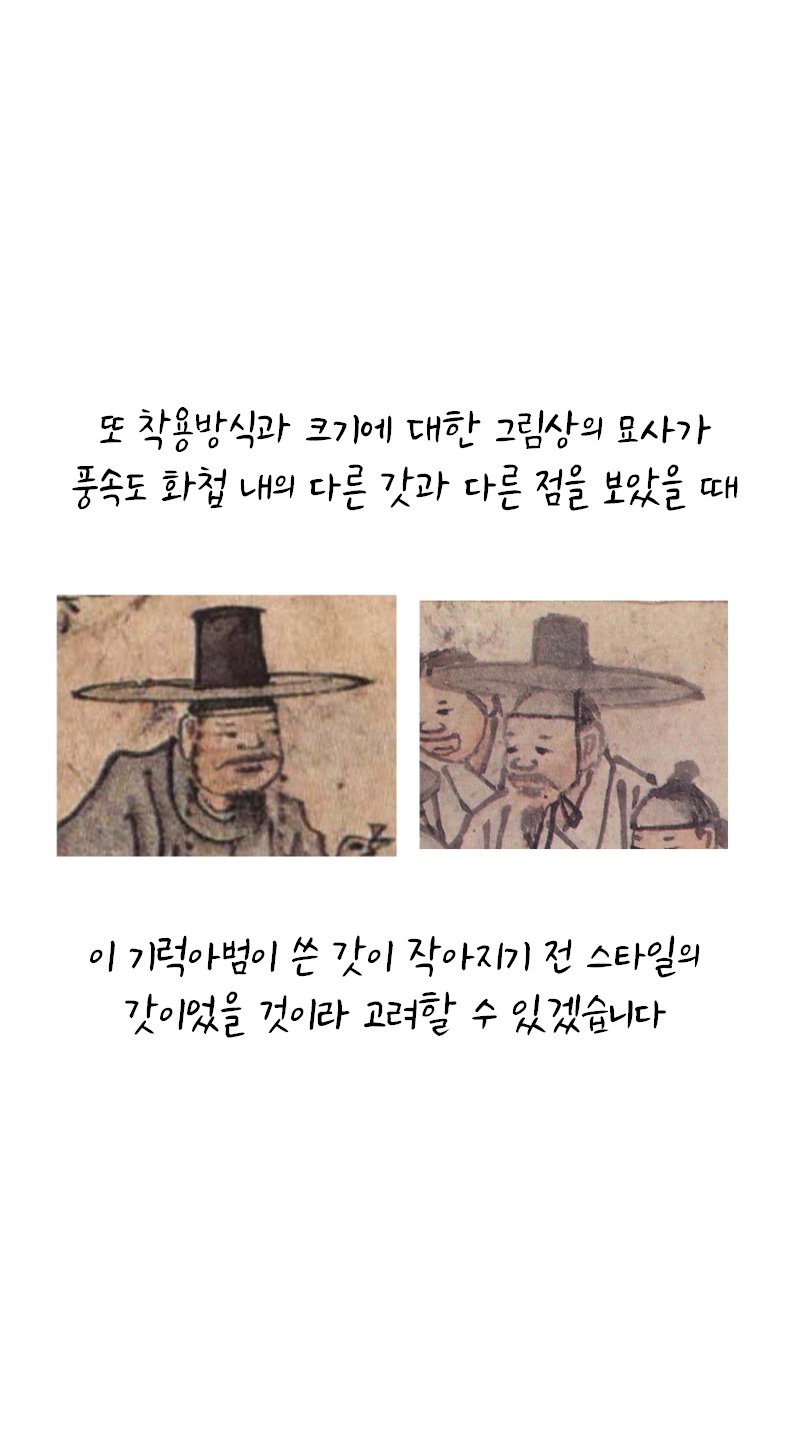 또 착용방식과 크기에 대한 그림상의 묘사가
풍속도 화첩 내의 다른 갓과 다른 점을 보았을 때
이 기럭아범이 쓴 갓이 작아지기 전 스타일의
갓이었을 것이라 고려할 수 있겠습니다